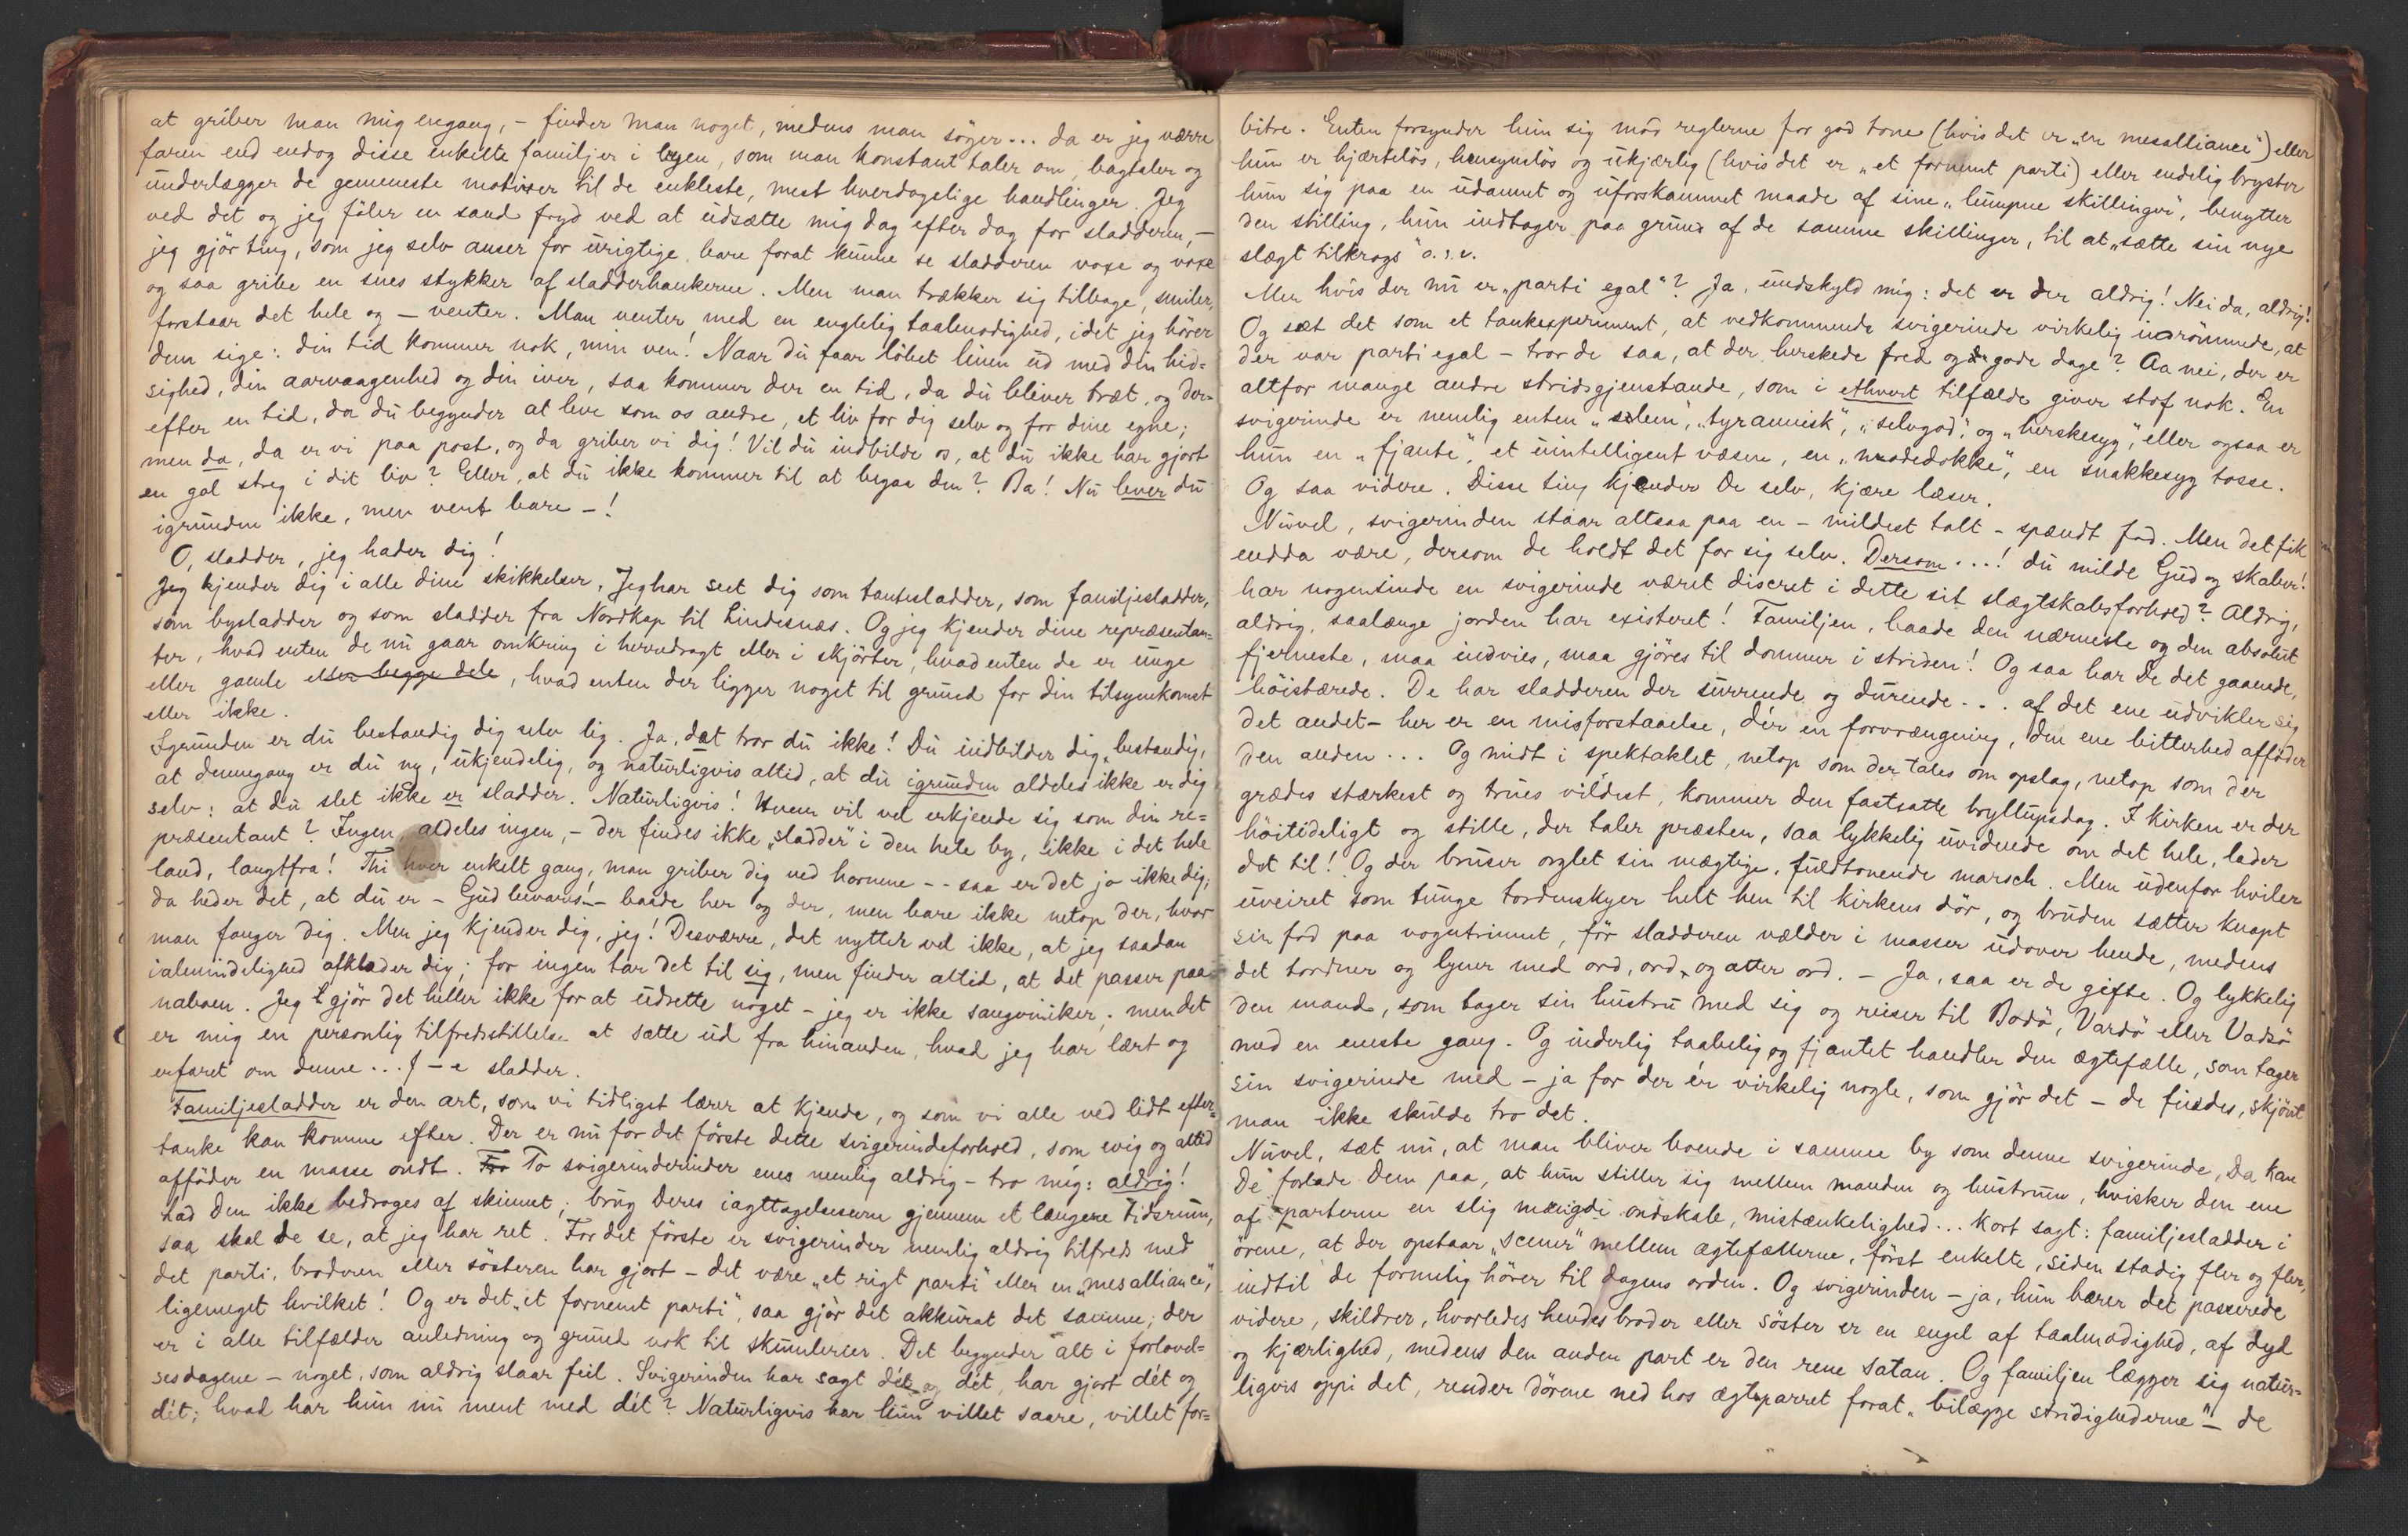 at griber man mig engang, – finder man noget, medens man söger... da er jeg værre
faren end endog disse enkelte familjer i byen, som man konstant taler om, bagtaler og
underlægger de gemeneste motiver til de enkleste, mest hverdagslige handlinger. Jeg
ved det og jeg föler en sand fryd ved at udsætte mig dag efter dag for sladderen, –
jeg gjör ting, som jeg selv anser for urigtige, bare forat kunne se sladderen voxe og voxe
og saa gribe en snes stykker af sladderhankerne. Men man trækker sig tilbage, smiler,
forstaar det hele og – venter. Man venter med en englelig taalmodighed, idet jeg hörer
dem sige: din tid kommer nok, min ven! Naar du faar löbet linen ud med din hid=
sighed, din aarvaagenhed og din iver, saa kommer der en tid, da du bliver træt, og der=
efter en tid, da du begynder at leve som os andre, et liv for dig selv og for dine egne;
men da, da er vi paa post, og da griber vi dig! Vil du indbilde os, at du ikke har gjort
en gal streg i dit liv? Eller, at du ikke kommer til at begaa den? Ba! Nu lever du
igrunden ikke, men vent bare –!
O, sladder, jeg hader dig!
Jeg kjender dig i alle dine skikkelser. Jeg har seet dig som tantesladder, som familjesladder,
som bysladder og som sladder fra Nordkap til Lindesnæs. Og jeg kjender dine repræsentan=
ter, hvad enten de nu gaar omkring i herredragt eller i skjörter, hvad enten de er unge
eller gamle eller begge dele, hvad enten der ligger noget til grund for din tilsynekomst
eller ikke.
Igrunden er du bestandig dig selv lig. Ja, det tror du ikke! Du indbilder dig, bestandig,
at dennegang er du ny, ukjendelig, og naturligvis altid, at du igrunden aldeles ikke er dig
selv: at du slet ikke er sladder. Naturligvis! Hvem vil vel erkjende sig som din re=
præsentant? Ingen, aldeles ingen, – der findes ikke „sladder“ i den hele by, ikke i det hele
land, langtfra! Thi hver enkelt gang, man griber dig ved hornene -- saa er det jo ikke dig;
da heder det, at du er – Gud bevares! – baade her og der, men bare ikke netop der, hvor
man fanger dig. Men jeg kjender dig, jeg! Desværre, det nytter vel ikke, at jeg saadan
ialmindelighed afklæder dig; for ingen tar det til sig, men finder altid, at det passer paa
naboen. Jeg gjör det heller ikke for at udrette noget – jeg er ikke sangviniker; men det
er mig en personlig tilfredsstillelse at sætte ud fra hinanden, hvad jeg har lært og
erfaret om denne... f – e sladder.
Familjesladder er den art, som vi tidligst lærer at kjende, og som vi alle ved lidt efter=
tanke kan komme efter. Der er nu for det förste dette svigerindeforhold, som evig og altid
afföder en masse ondt. For To svigerinderinder enes nemlig aldrig – tro mig: aldrig!
Lad Dem ikke bedrages af skinnet; brug Deres iagttagelsesevne gjennem et længere tidsrum,
saa skal De se, at jeg har ret. For det förste er svigerinder nemlig aldrig tilfreds med
det parti, broderen eller sösteren har gjort – det være „et rigt parti“ eller en „mesalliance“,
ligemeget hvilket! Og er det „et fornemt parti“, saa gjör det akkurat det samme; der
er i alle tilfælder anledning og grund nok til skumlerier. Det begynder alt i forlovel=
sesdagene – noget, som aldrig slaar feil. Svigerinden har sagt dét og dét, har gjort dét og
dét; hvad har hun nu ment med dét? Naturligvis har hun villet saare, villet for=
bitre. Enten forsynder hun sig mod reglerne for god tone (hvis det er „en mesalliance“) eller
hun er hjærtelös, hensynslös og ukjærlig (hvis det er „et fornemt parti) eller endelig bryster
hun sig paa en udannet og uforskammet maade af sine „lumpne skillinger“, benytter
den stilling, hun indtager paa grund af de samme skillinger, til at „sætte sin nye
slægt tilkrogs“ o.s.v.
Men hvis der nu er „parti egal“? Ja, undskyld mig: det er der aldrig! Nei da, aldrig!
Og sæt det som et tankexperiment, at vedkommende svigerinde virkelig indrömmede, at
der var parti egal – tror de saa, at der herskede fred og gode dage? Aa nei, der er
altfor mange andre stridsgjenstande, som i ethvert tilfælde giver stof nok. En
svigerinde er nemlig enten „slem“, „tyrannisk“, „selvgod“ og „herskesyg“, eller ogsaa er
hun en „fjante“, et uintelligent væsen, en „modedokke“, en snakkesyg tosse.
Og saa videre. Disse ting kjender De selv, kjære læser.
Nuvel, svigerinden staar altsaa paa en – mildest talt – spændt fod. Men det fik
endda være, dersom de holdt det for sig selv. Dersom....! du milde Gud og skaber!
har nogensinde en svigerinde været discret i dette sit slægtskabsforhold? Aldrig,
aldrig, saalænge jorden har existeret! Familjen, baade den nærmeste og den absolut
fjerneste, maa indvies, maa gjöres til dommer i striden! Og saa har De det gaaende,
höistærede. De har sladderen der surrende og durende... af det ene udvikler sig
det andet – her er en misforstaaelse, dér en forvrængning, den ene bitterhed afföder
den anden... Og midt i spektaklet, netop som der tales om opslag, netop som der
grædes stærkest og trues vildest, kommer den fastsatte bryllupsdag. I kirken er der
höitideligt og stille, der taler præsten, saa lykkelig uvidende om det hele, lader
det til! Og der bruser orglet sin mægtige, fuldtonende marsch. Men udenfor hviler
uveiret som tunge tordenskyer helt hen til kirkens dör, og bruden sætter knapt
sin fod paa vogntrinnet, för sladderen vælder i masser udover hende, medens
det tordner og lyner med ord, ord, og atter ord. – Ja, saa er de gifte. Og lykkelig
den mand, som tager sin hustru med sig og reiser til Bodö, Vardö eller Vadsö
med en eneste gang. Og inderlig taabelig og fjantet handler den ægtefælle, som tager
sin svigerinde med – ja for der ér virkelig nogle, som gjör det – de findes, skjönt
man ikke skulde tro det.
Nuvel, sæt nu, at man bliver boende i samme by som denne svigerinde, Da kan
De forlade Dem paa, at hun stiller sig mellem manden og hustruen, hvisker den ene
af parterne en slig mængde ondskab, mistænkelighed... kort sagt: familjesladder i
örene, at der opstaar „scener“ mellem ægtefællerne, först enkelte, siden stadig fler og fler,
indtil de formelig hörer til dagens orden. Og svigerinden – ja, hun bærer det passerede
videre, skildrer, hvorledes hendes broder eller söster er en engel af taalmodighed, af dyd
og kjærlighed, medens den anden part er den rene Satan. Og familjen lægger sig natur=
ligvis oppi det, render dörene ned hos ægteparret forat „bilægge stridighederne“ – de